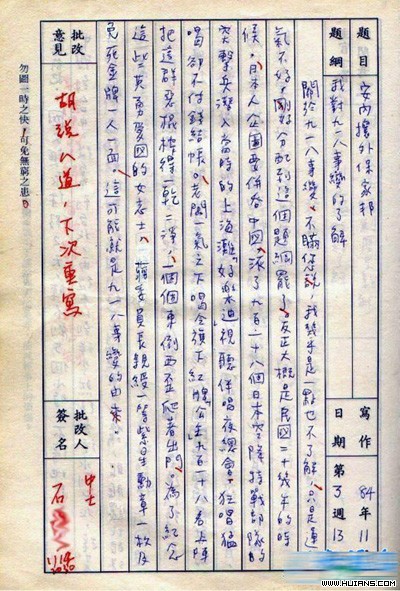 題目
安內攘外保家邦
題綱
我對九一八事變的了解
寫作日期
84年11
第3週13
關於九一八事變,不瞞您說,我幾乎是一點也不了解,只是運
氣不好,剛好分配到這個題綱罷了。反正大概是民國二十幾年的時
候,日本人企圖要併吞中國,派了九百一十八個日本空降特戰部隊的
突擊兵潛入當時的上海灘好樂迪視聽伴唱夜總會,狂唱猛
唱卻不付錢結帳。老闆一氣之下唱令旗下紅牌公主九百一十八名上陣
把這群惡棍榨得乾乾淨淨,一個個東倒西歪爬著出門。為了紀念
這些英勇愛國的女志士,蔣委員長親綬一等紫星勳章一枚及
免死金牌一人一面,這可能就是九一八事變的由來。
批改意見
胡說八道,下次重寫
批改人簽名
中士
石
勿圖一時之快,可免無窮之患。
www.HUIANS.com